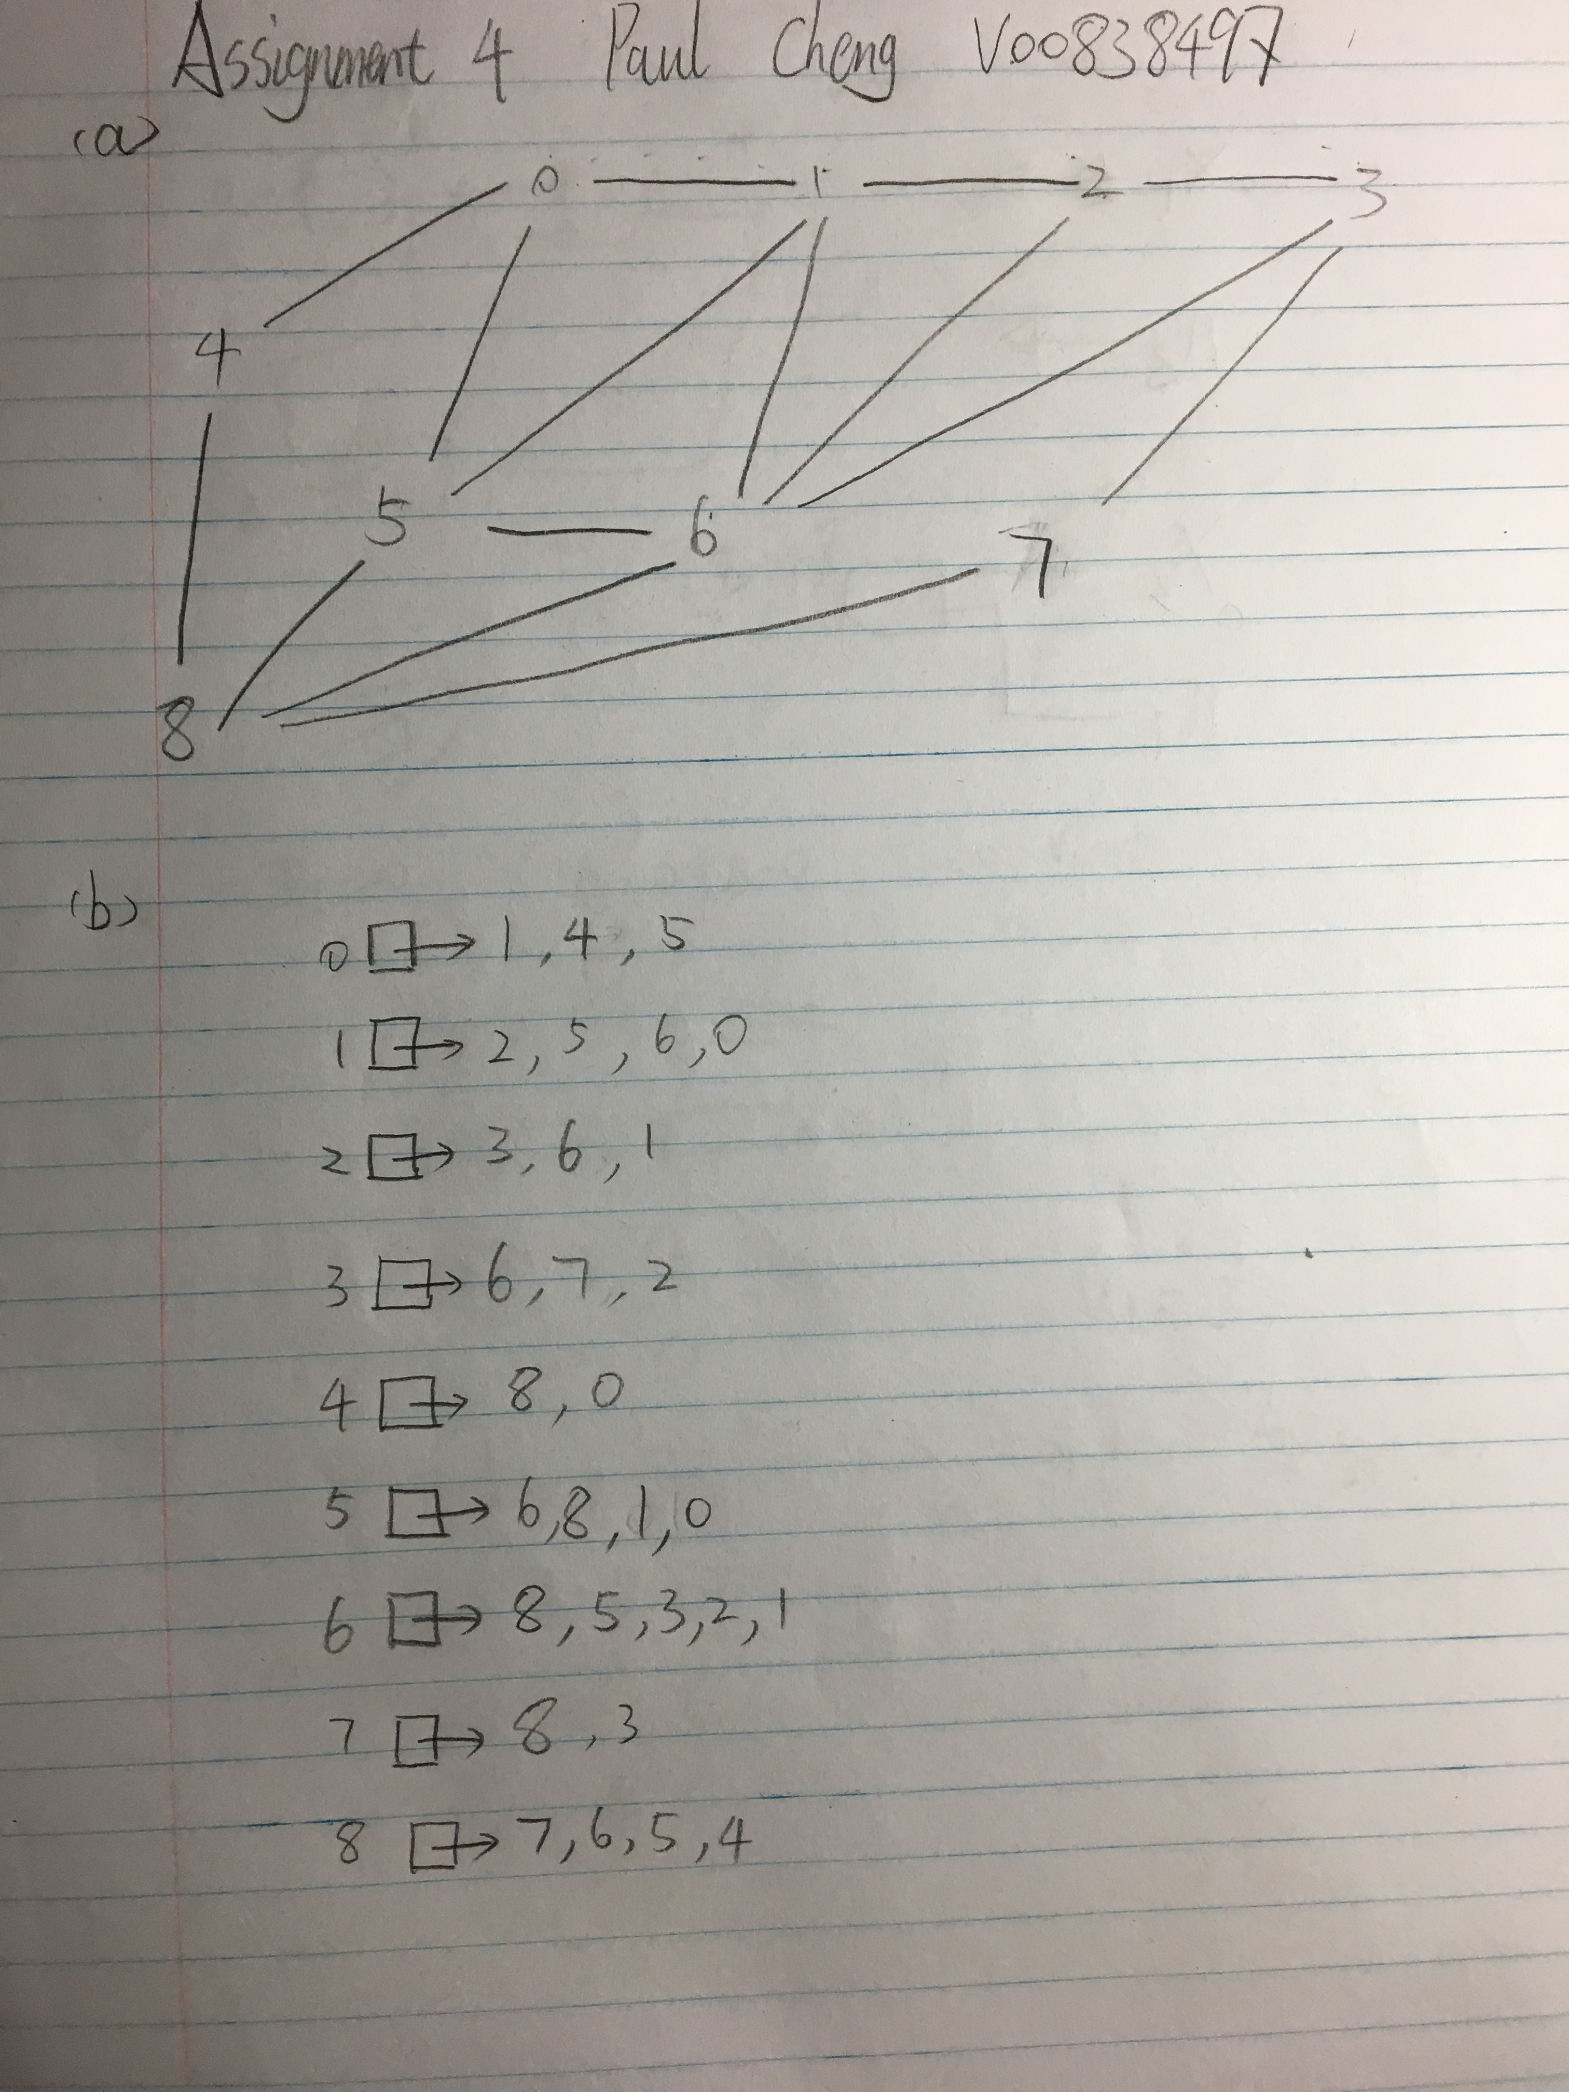 Assignment 4 Paul Cheng V00838497
(a)
0 1 2 3
4
5 6 7
8
(b)
0 → 1, 4, 5
1 → 2, 5, 6, 0
2 → 3, 6, 1
3 → 6, 7, 2
4 → 8, 0
5 → 6, 8, 1, 0
6 → 8, 5, 3, 2, 1
7 → 8, 3
8 → 7, 6, 5, 4